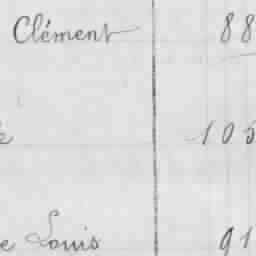 Clément 88
105
Louis 91